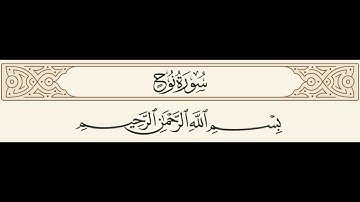 سُورَةُ نُوحٍ
بِسْمِ ٱللَّهِ ٱلرَّحْمَٰنِ ٱلرَّحِيمِ